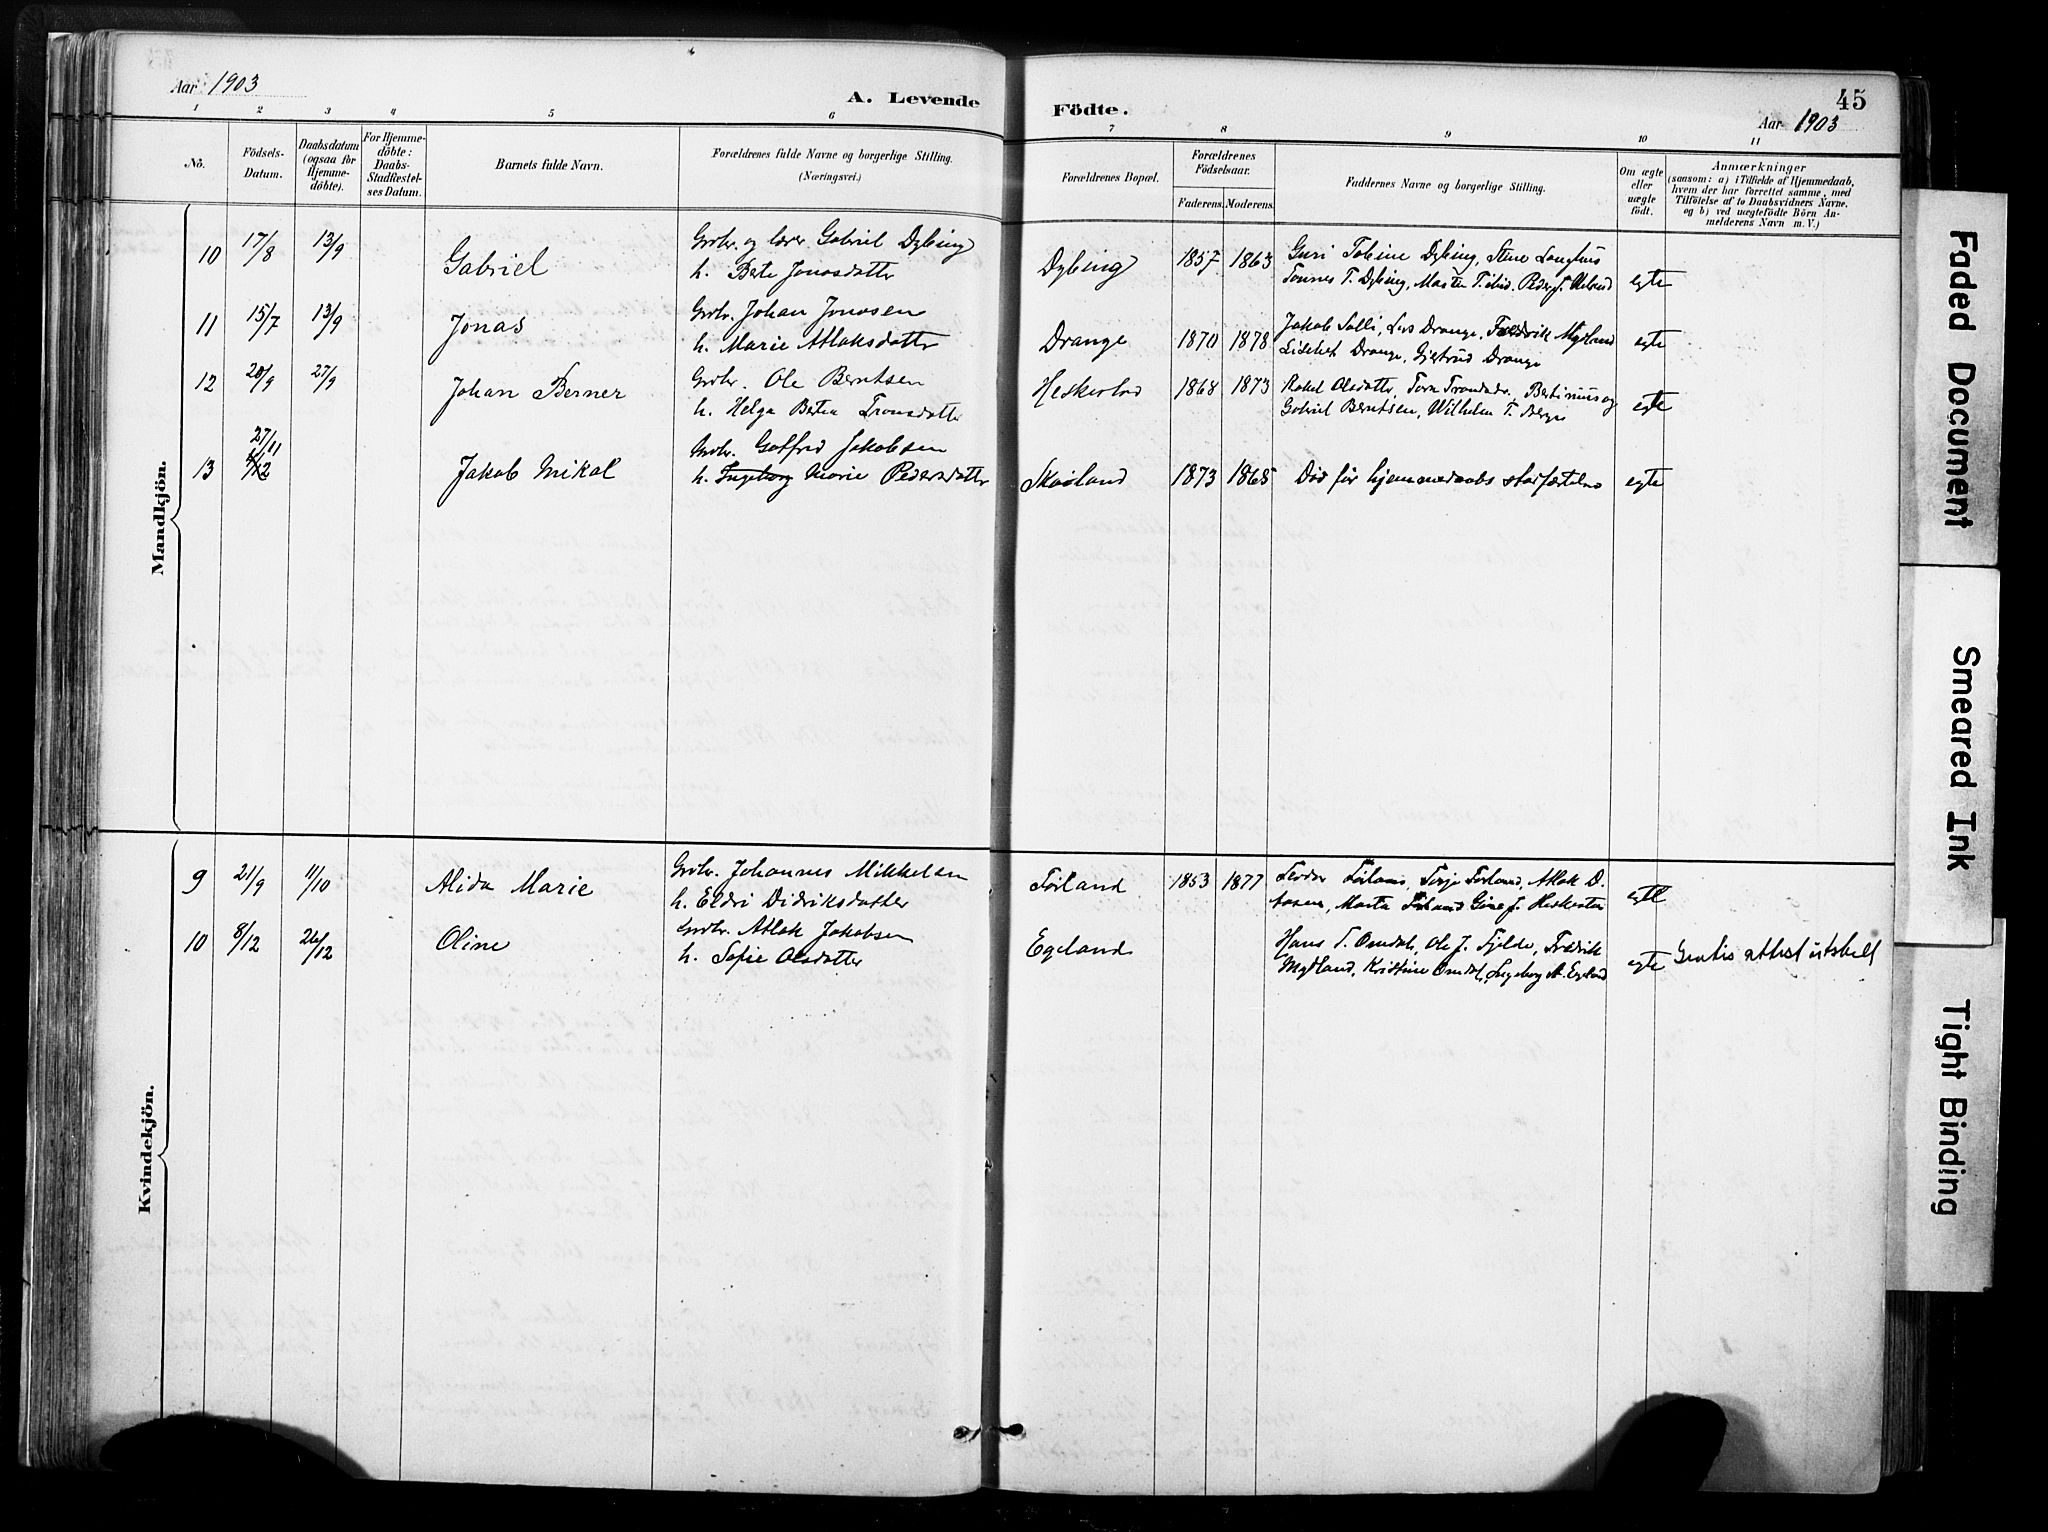 Aar 1903
A. Levende
Födte.
45
Aar 1903
1 2 3 4 5 6 7 8 9 10 11
No.
Födsels-
Datum.
Daabsdatum
(ogsaa for
Hjemme-
döbte).
For Hjemme-
döbte:
Daabs-
Stadfæstel-
ses Datum.
Barnets fulde Navn.
Forældrenes fulde Navne og borgerlige Stilling.
(Næringsvei.)
Forældrenes Bopæl.
Forældrenes
Födselsaar.
Faderens. Moderens.
Faddernes Navne og borgerlige Stilling.
Om ægte
eller
uægte
födt.
Anmærkninger
(saasom: a) i Tilfælde af Hjemmedaab,
hvem der har forrettet samme, med
Tilföielse af to Daabsvidners Navne.
og b) ved uægtefödte Börn An-
melderens Navn m. V.)
Mandkjön.
10 17/8 13/9 Gabriel
Grdbr. og lærer Gabriel Dybing
h. Berte Jonasdatter
Dybing 1857 1863
Guri Tobine Dybing, Stine Longhus
Tonnes T. Dybing, Peder J.
egte
11 15/7 13/9 Jonas
Grdbr. Johan Jonasen
h. Marie Atlaksdatter
Drange 1870 1878
Jakob Solli, Lars Drange, Fredrik Mydland
Lisebet Drange, Gjertrud Drange
egte
12 20/9 27/9 Johan Berner
Grdbr. Ole Berntsen
h. Helga Bertea Tronsdatter
Heskestad 1868 1873
Rakel Olsdatter, Tora og
Gabriel Berntsen, Wilhelm T. Berge
egte
13 27/11 Jakob Mikal
Grdbr. Gotfred Jakobsen
h. Ingeborg Marie Pedersdatter
Skaaland 1873 1865
Død før hjemmedaabs stadfæstelse
egte
Kvindekjön.
9 21/9 11/10 Alida Marie
Grdbr. Johannes Mikkelsen
h. Eldri Didriksdatter
Førland 1853 1877
Teodor Førland, Terje Førland, Atlak D.
Marta Førland, Gine J. Heskestad
egte
10 8/12 26/12 Oline
Grdbr. Atlak Jakobsen
h. Sofie Olsdatter
Egeland
Hans T. Omdal, Ole J. Fjelde, Fredrik
Mydland, Kristine Omdal, Ingeborg A. Egeland
egte
Gratis attest utstedt
Faded Document
Smeared Ink
Tight Binding